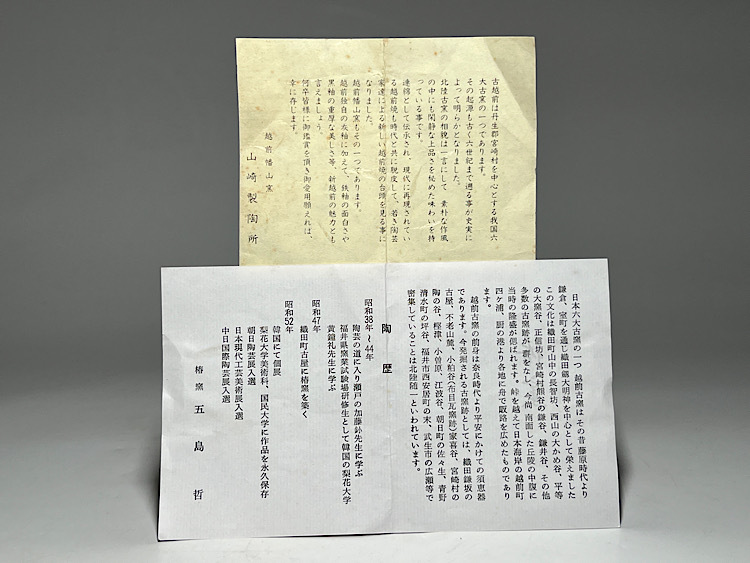 古越前は丹生郡宮崎村を中心とする我国六
大古窯の一つであります。
その起源も古く六世紀まで遡る事が史実に
よって明らかとなりました。
北陸古窯の相貌は一言にして 素朴な作風
の中にも閑静な上品さを秘めた味わいを持
っている事です。
連綿として伝承され、現代に再現されてい
る越前焼も時代と共に脱皮して、若き陶芸
家達による新しい越前焼の台頭を見る事に
なりました。
越前幡山窯もその一つであります。
越前独自の灰釉に加えて、鉄釉の面白さや
黒釉の重厚な美しさ等、新越前の魅力とも
言えましょう。
何卒皆様に御鑑賞を頂き御愛用願えれば、
幸に存じます。
越前幡山窯
山崎製陶所
日本六大古窯の一つ 越前古窯は その昔 藤原時代より
鎌倉、室町を通じ織田劔大明神を中心として栄えました
この文化は織田町山中の長智坊、西山の大かめ谷、平等
の大窯谷、正信坊、宮崎村熊谷の鎌谷、鎌井谷、その他
多数の古窯跡が一群をなし、今尚 南面した丘陵の中腹に
当時の隆盛が偲ばれます。峠を越えて日本海岸の越前町
四ケ浦、厨の港より各地に舟で販路を広めたものであり
ます。
越前古窯の前身は奈良時代より平安にかけての須恵器
であります。今発掘される古窯跡としては、織田鎌坂の
古屋、不老山麓、小粕谷(布目瓦窯跡)家喜谷、宮崎村の
陶の谷、樫津、小曽原、江波谷、朝日町の佐々生、青野
清水町の坪谷、福井市西安居町の末、武生市の広瀬等で
密集していることは北陸随一といわれています。
陶歴
昭和38年～44年
陶芸の道に入り瀬戸の加藤釥先生に学ぶ
福井県窯業試験場研修生として韓国の梨花大学
黄鍾礼先生に学ぶ
昭和47年
織田町古屋に椿窯を築く
昭和52年
韓国にて個展
梨花大学美術科、国民大学に作品を永久保存
朝日陶芸展入選
日本現代工芸美術展入選
中日国際陶芸展入選
椿窯 五島 哲